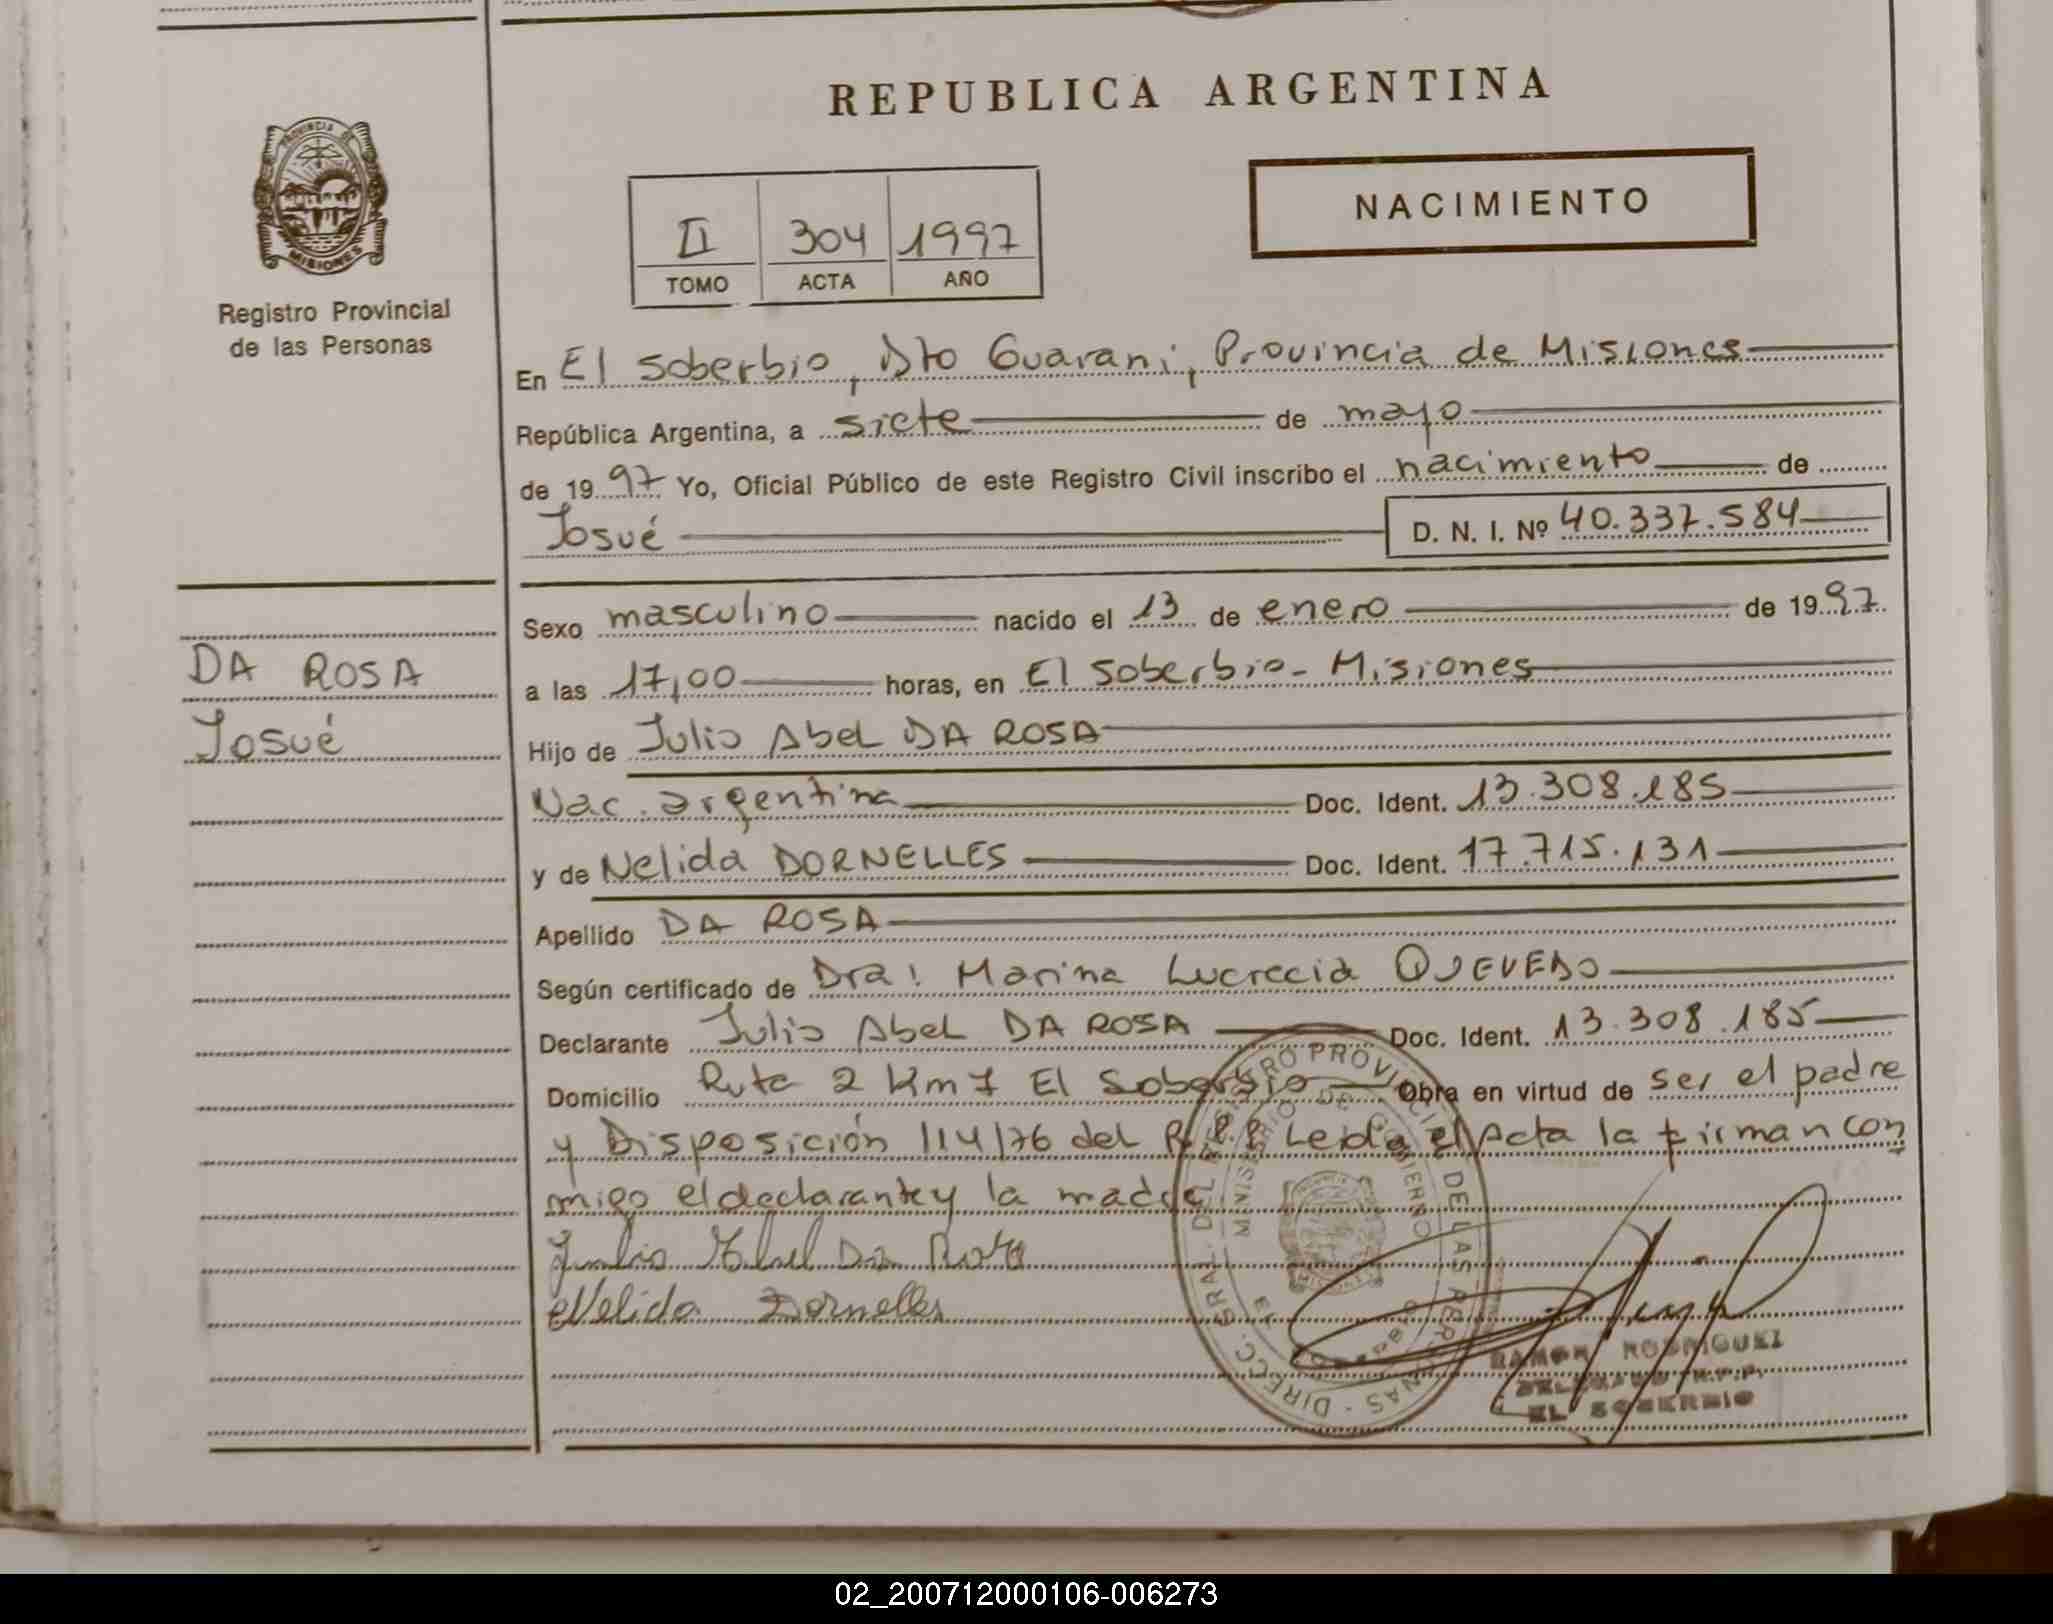 REPUBLICA ARGENTINA
PROVINCIA DE
MISIONES
Registro Provincial
de las Personas
NACIMIENTO
II 304 1997
TOMO ACTA AÑO
En El Soberbio, Dto Guarani, Provincia de Misiones
República Argentina, a siete de mayo
de 1997 Yo, Oficial Público de este Registro Civil inscribo el nacimiento de
Josué D. N. I. Nº 40.337.584
Sexo masculino nacido el 13 de enero de 1997
DA ROSA
a las 17,00 horas, en El Soberbio - Misiones
Josué
Hijo de Julio Abel DA ROSA
Nac. argentina Doc. Ident. 13.308.185
y de Nelida DORNELLES Doc. Ident. 17.715.131
Apellido DA ROSA
Según certificado de Dra! Marina Lucrecia QUEVEDO
Declarante Julio Abel DA ROSA Doc. Ident. 13.308.185
Domicilio Ruta 2 Km 7 El Soberbio Obra en virtud de ser el padre
y Disposición 114/76 del R.P.P. Leida el Acta la firman con
migo el declarante y la madre
Julio Abel Da Rosa
Nelida Dornelles
DIRECC. GRAL. DEL REGISTRO PROVINCIAL DE LAS PERSONAS
MINISTERIO DE GOBIERNO
RAMON RODRIGUEZ
DELEGADO R.P.P.
EL SOBERBIO
02_200712000106-006273